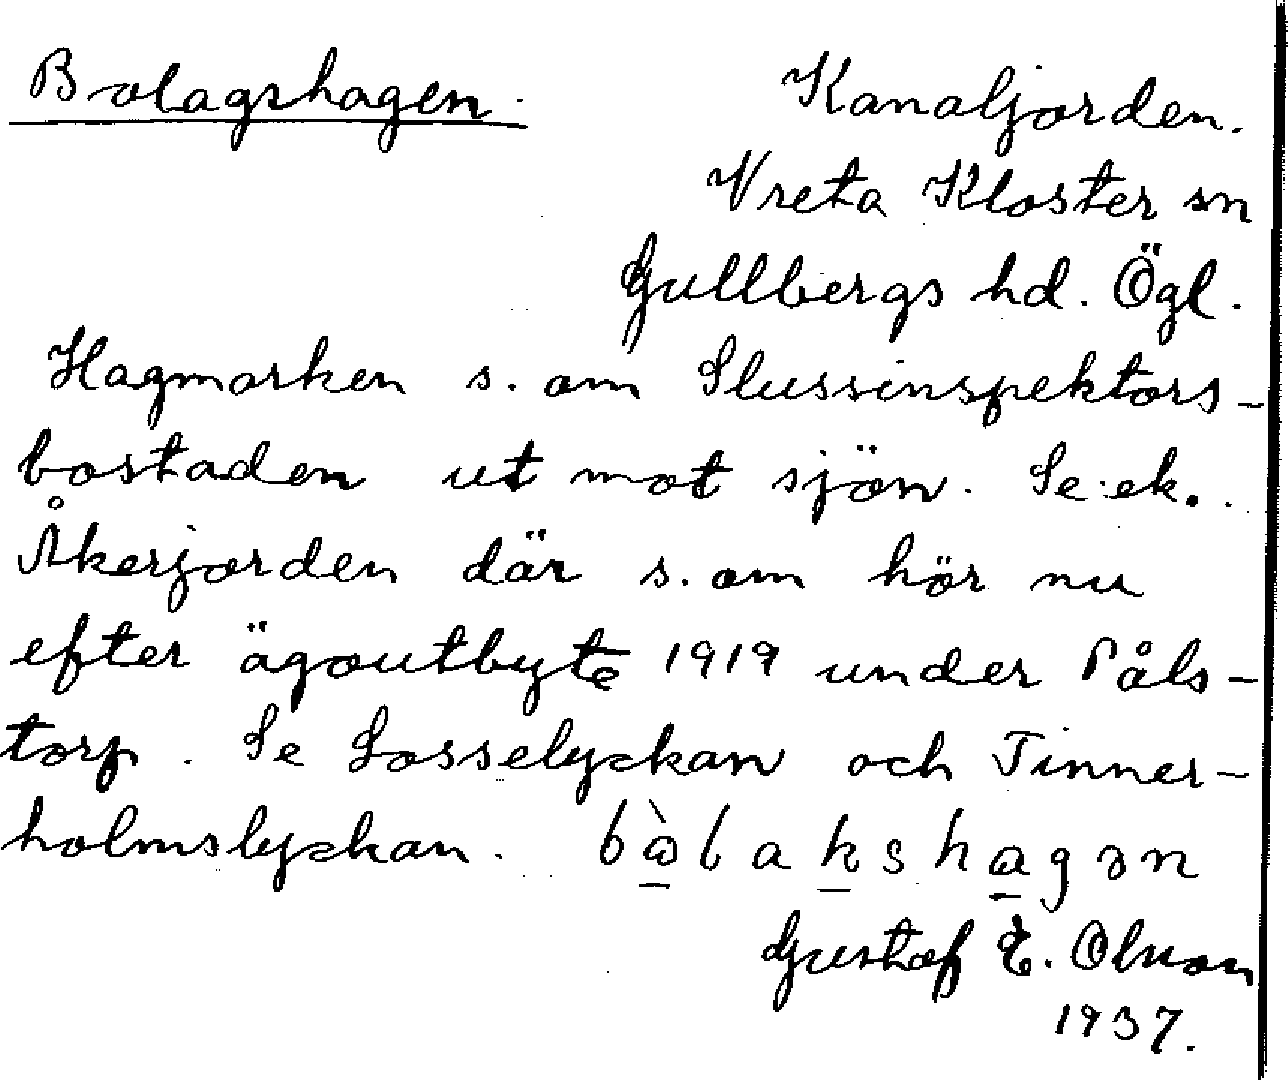 Bolagshagen.
Kanaljorden.
Vreta Kloster sn
Gullbergs hd. Ögl.
Hagmarken s. om Slussinspektors-
bostaden ut mot sjön. Se ek.
Åkerjorden där s. om hör nu
efter ägoutbyte 1919 under Påls-
torp. Se Losselyckan och Tinner-
holmslyckan. bὼlakshagən
Gustaf E. Olsson
1937.